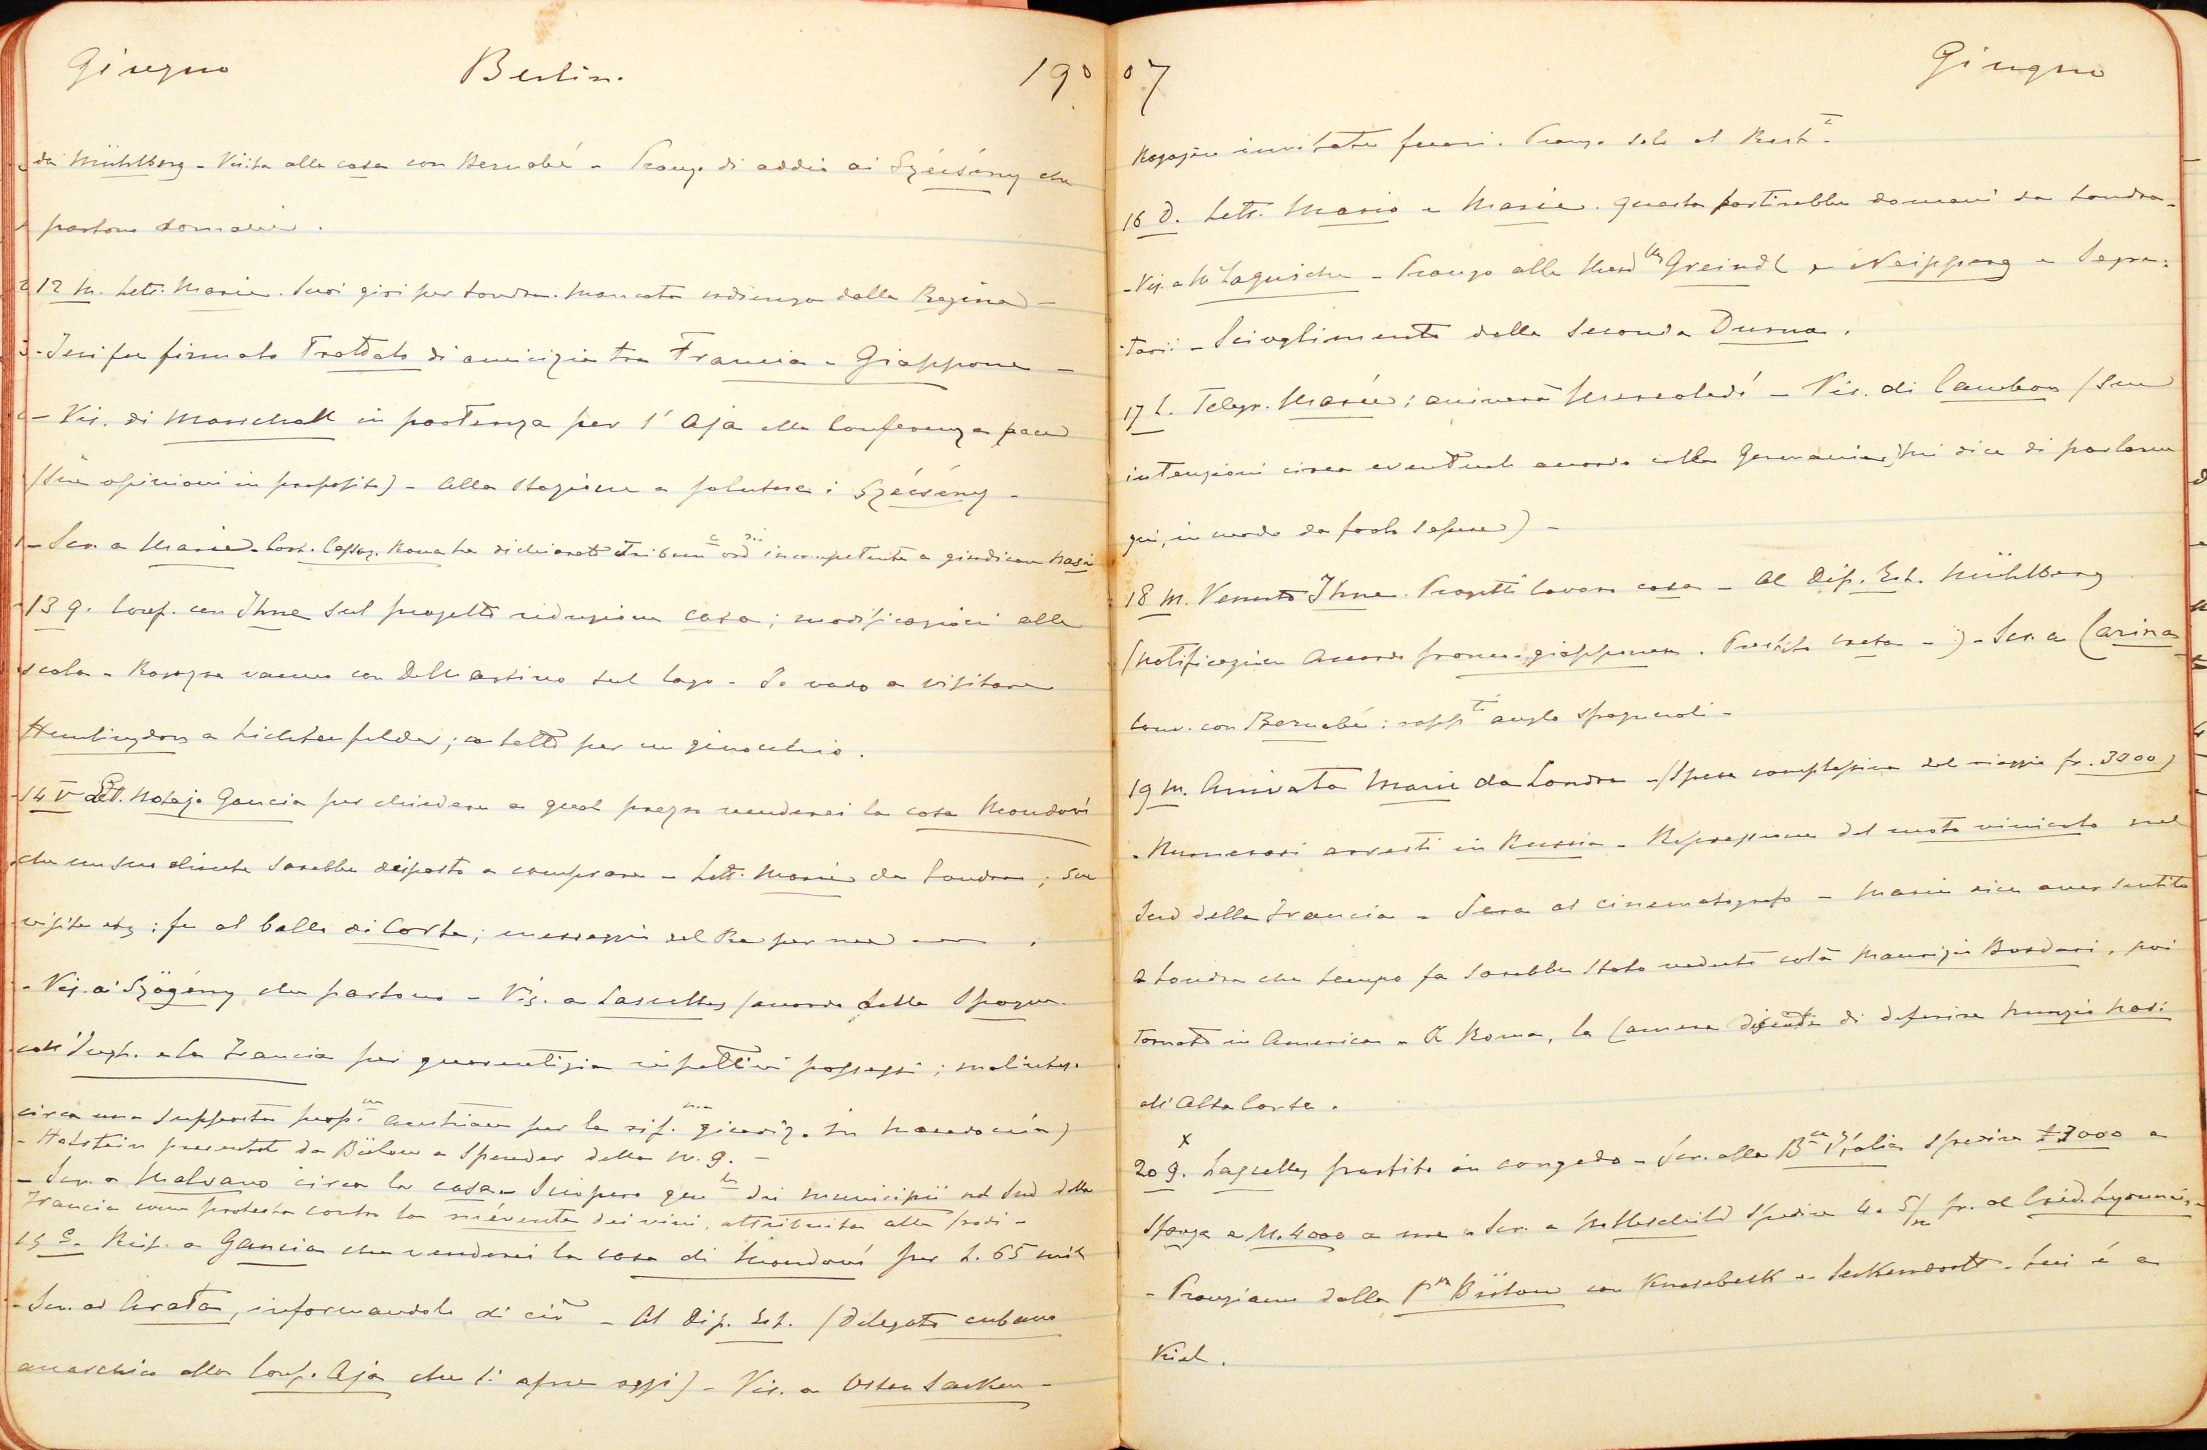 Giugno Berlin. 190
da Mühlberg - Visita alla casa con Bernabé - Pranzo di addio ai Szécsény che
partono domani.
12 M. Lett. Marie. Suoi giri per Londra. Mancata udienza dalla Regina -
- Ieri fu firmato Trattato di amicizia tra Francia e Giappone -
- Vis. di Marschall in partenza per l'Aja alla Conferenza pace
(Sue opinioni in proposito) - Alla stazione a salutare i Szécsény -
- Scr. a Marie. Cort. Cassaz. Roma ha dichiarato Tribun.e ord.rii incompetente a giudicare Nasi
13 g. Conf. con Ihne sul progetto riduzione casa; modificazioni alla
scala - Ragazze vanno con De Martino sul lago - Io vado a visitare
a Lichterfelde; a letto per un ginocchio.
14 V Lett. Notajo Gancia per chiedere a qual prezzo venderei la casa Mondovì
che un suo cliente sarebbe disposto a comprare - Lett. Marie da Londra; sue
visite etc; fu al ballo di Corte; messaggi del Re per me
- Vis. ai Szögény che partono - Vis. a Lascelles (accordo della Spagna
coll'Ingh. e la Francia per guarentigia rispettivi possessi; malinteso
circa una supposta prop.ne austriaca per la rif.ma giudiz. in Macedonia)
- Holstein presentato da Bülow a Spender della W. G. -
- Scr. a Malvano circa la casa - Sciopero gen.le dei municipii nel Sud della
Francia come protesta contro la mévente dei vini, attribuita alla frodi -
15 S. Risp. a Gancia che venderei la casa di Mondovì per L. 65 mila
- Scr. ad Arata, informandolo di ciò - Al Dip. Est. (Delegato cubano
anarchico alla Conf. Aja che si apre oggi) - Vis. a Osten Sacken -
07 Giugno
Ragazze invitate fuori. Pranzo solo al Rest.t
16 D. Lett. Mario e Marie. Questa partirebbe domani da Londra -
- Vis. a Laguiche - Pranzo alla Greindl e Neipperg e Segre:
tarii - Scioglimento della seconda Duma.
17 L. Telegr. Marie; arriverà Mercoledì - Vis. di Cambon (Sue
intenzioni circa eventuale accordo colla Germania; mi dice di parlarne
qui, in modo da farlo sapere) -
18 M. Venuto Ihne. Progetti lavoro casa - Al Dip. Est. Mühlberg
(Notificazione Accordo franco-giapponese. Prestito Creta -) - Scr. a Carina
Conv. con Bernabé: rapp.ti anglo spagnuoli -
19 M. Arrivata Marie da Londra - (Spesa complessiva del viaggio fr. 3000)
- Numerosi arresti in Russia - Repressione del moto vinicolo nel
Sud della Francia - Sera al cinematografo - Marie dice aver sentito
a Londra che tempo fa sarebbe stato veduto colà Maurizio Bosdari, poi
tornato in America - A Roma, la Camera di deferire Nunzio Nasi
all'Alta Corte.
20 g. Lascelles partito in congedo - Scr. alla B.ca d'Italia spedire 3000 a
Sforza e M. 4000 a me - Scr. a Rothschild spedire 4 a 5/m fr. al Créd. Lyonnais -
- Pranziamo dalla P.ssa Bülow con Knesebeck e Seckendorff - Lui è a
Kiel.